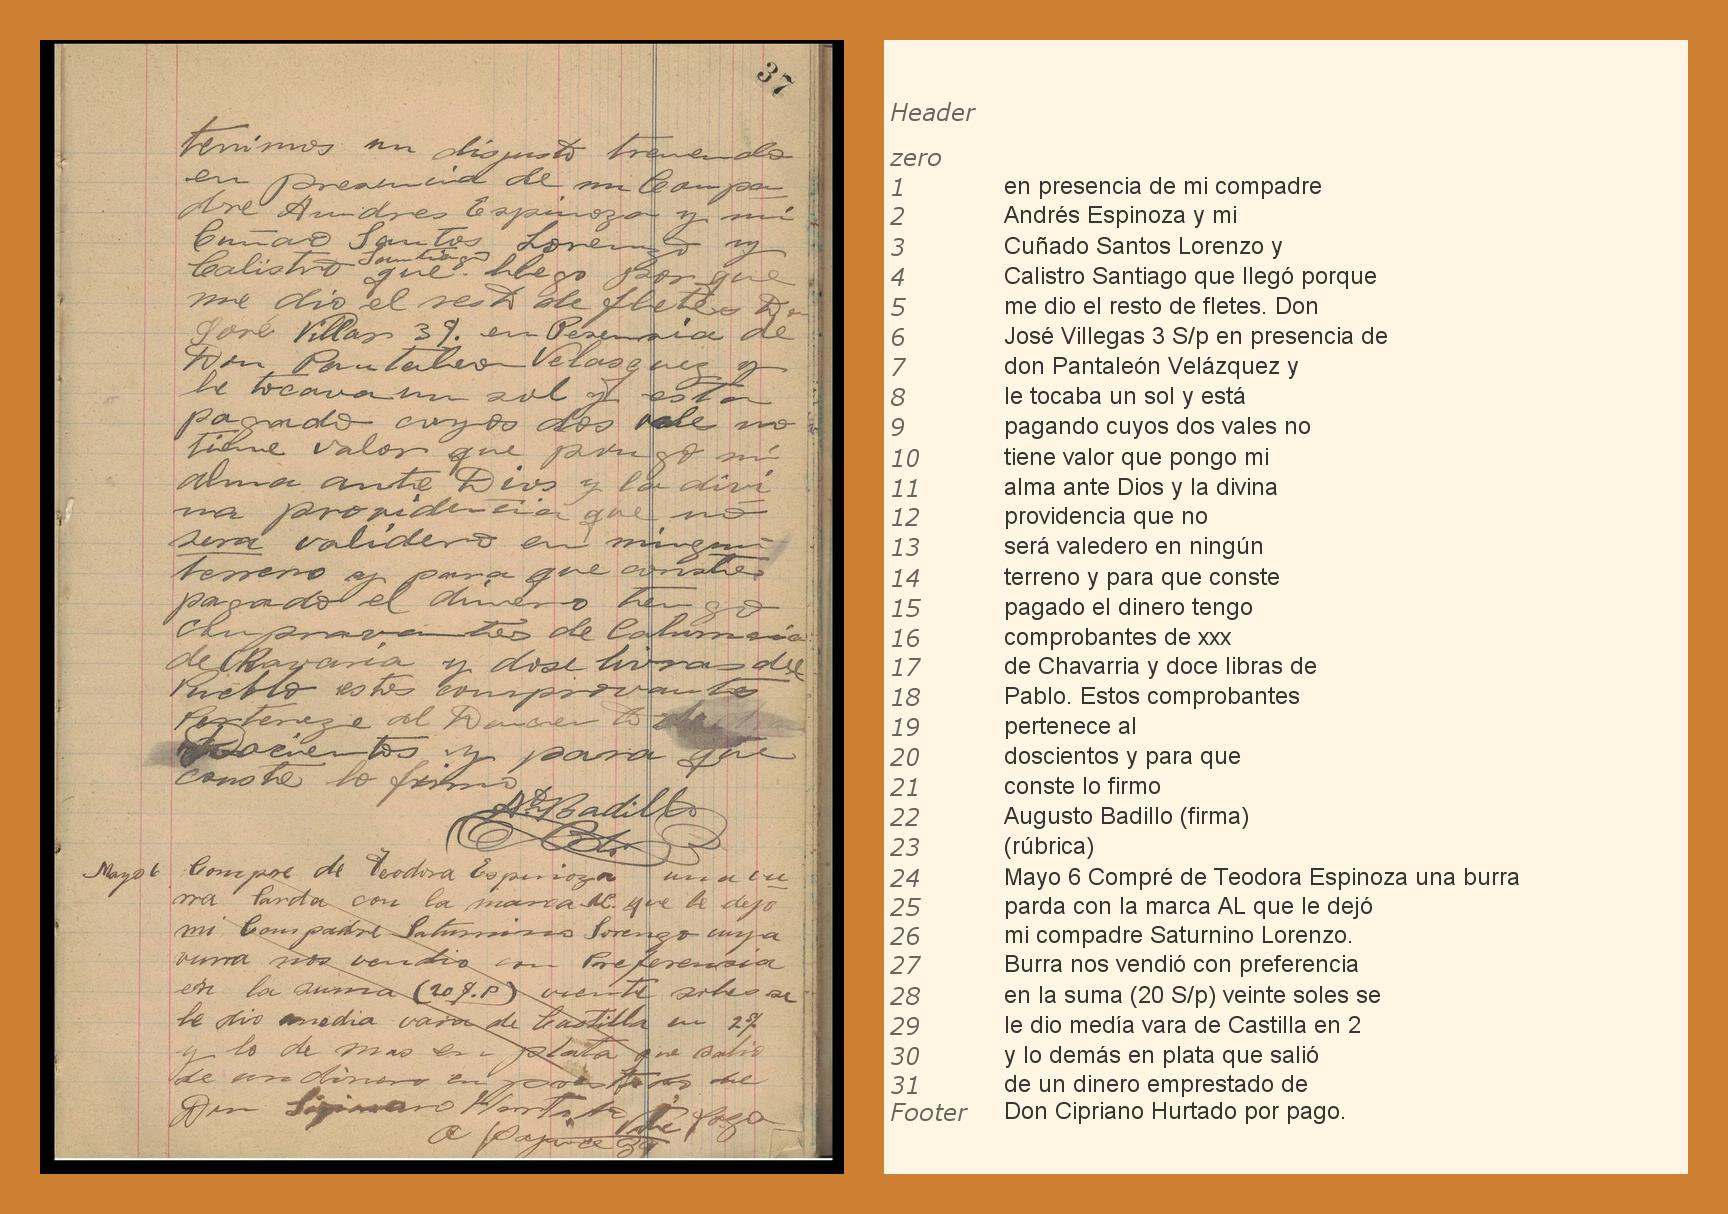 37
tenimos un disgusto tremendo
en presencia de mi Compa
dre Andres Espinoza y mi
Cuñao Santos Lorenzo y
Calistro Santiago que llego por que
me dio el resto de fletes Don
José Villar 3 $. en Presensia de
Don Pantaleon Velasquez y
le tocava un sol y esta
pagado cuyos dos vale no
tiene valor que pongo mi
alma ante Dios y la divi
na providencia que no
sera validero en ningun
terreno y para que conste
pagado el dinero tengo
de Chavaria y dose livras del
Pueblo estos comprovantes
Perteneze al
Docientos y para que
conste lo firmo
Badillo
Mayo 6 Compre de Teodora Espinoza una vu
rra Parda con la marca AL que le dejo
mi Compadre Saturnino Lorenzo cuya
vurra nos vendio con Preferensia
en la suma (20 $.P) viente soles se
le dio media vara de Castilla en 2 $
y lo de mas en plata que salio
de un dinero en de
Don
Header
zero
1 en presencia de mi compadre
2 Andrés Espinoza y mi
3 Cuñado Santos Lorenzo y
4 Calistro Santiago que llegó porque
5 me dio el resto de fletes. Don
6 José Villegas 3 S/p en presencia de
7 don Pantaleón Velázquez y
8 le tocaba un sol y está
9 pagando cuyos dos vales no
10 tiene valor que pongo mi
11 alma ante Dios y la divina
12 providencia que no
13 será valedero en ningún
14 terreno y para que conste
15 pagado el dinero tengo
16 comprobantes de xxx
17 de Chavarria y doce libras de
18 Pablo. Estos comprobantes
19 pertenece al
20 doscientos y para que
21 conste lo firmo
22 Augusto Badillo (firma)
23 (rúbrica)
24 Mayo 6 Compré de Teodora Espinoza una burra
25 parda con la marca AL que le dejó
26 mi compadre Saturnino Lorenzo.
27 Burra nos vendió con preferencia
28 en la suma (20 S/p) veinte soles se
29 le dio medía vara de Castilla en 2
30 y lo demás en plata que salió
31 de un dinero emprestado de
Footer Don Cipriano Hurtado por pago.